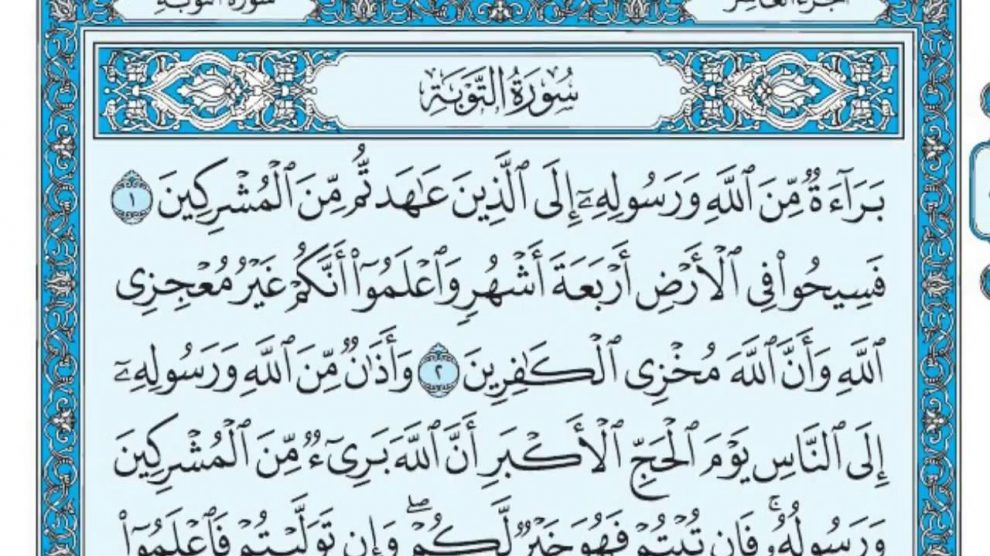 الجزء العاشر سورة التوبة
سُورَةُ التَّوۡبَةِ
بَرَآءَةٞ مِّنَ ٱللَّهِ وَرَسُولِهِۦٓ إِلَى ٱلَّذِينَ عَٰهَدتُّم مِّنَ ٱلۡمُشۡرِكِينَ ١
فَسِيحُواْ فِي ٱلۡأَرۡضِ أَرۡبَعَةَ أَشۡهُرٖ وَٱعۡلَمُوٓاْ أَنَّكُمۡ غَيۡرُ مُعۡجِزِي
ٱللَّهِ وَأَنَّ ٱللَّهَ مُخۡزِي ٱلۡكَٰفِرِينَ ٢ وَأَذَٰنٞ مِّنَ ٱللَّهِ وَرَسُولِهِۦٓ
إِلَى ٱلنَّاسِ يَوۡمَ ٱلۡحَجِّ ٱلۡأَكۡبَرِ أَنَّ ٱللَّهَ بَرِيٓءٞ مِّنَ ٱلۡمُشۡرِكِينَ
وَرَسُولُهُۥۚ فَإِن تُبۡتُمۡ فَهُوَ خَيۡرٞ لَّكُمۡۖ وَإِن تَوَلَّيۡتُمۡ فَٱعۡلَمُوٓاْ